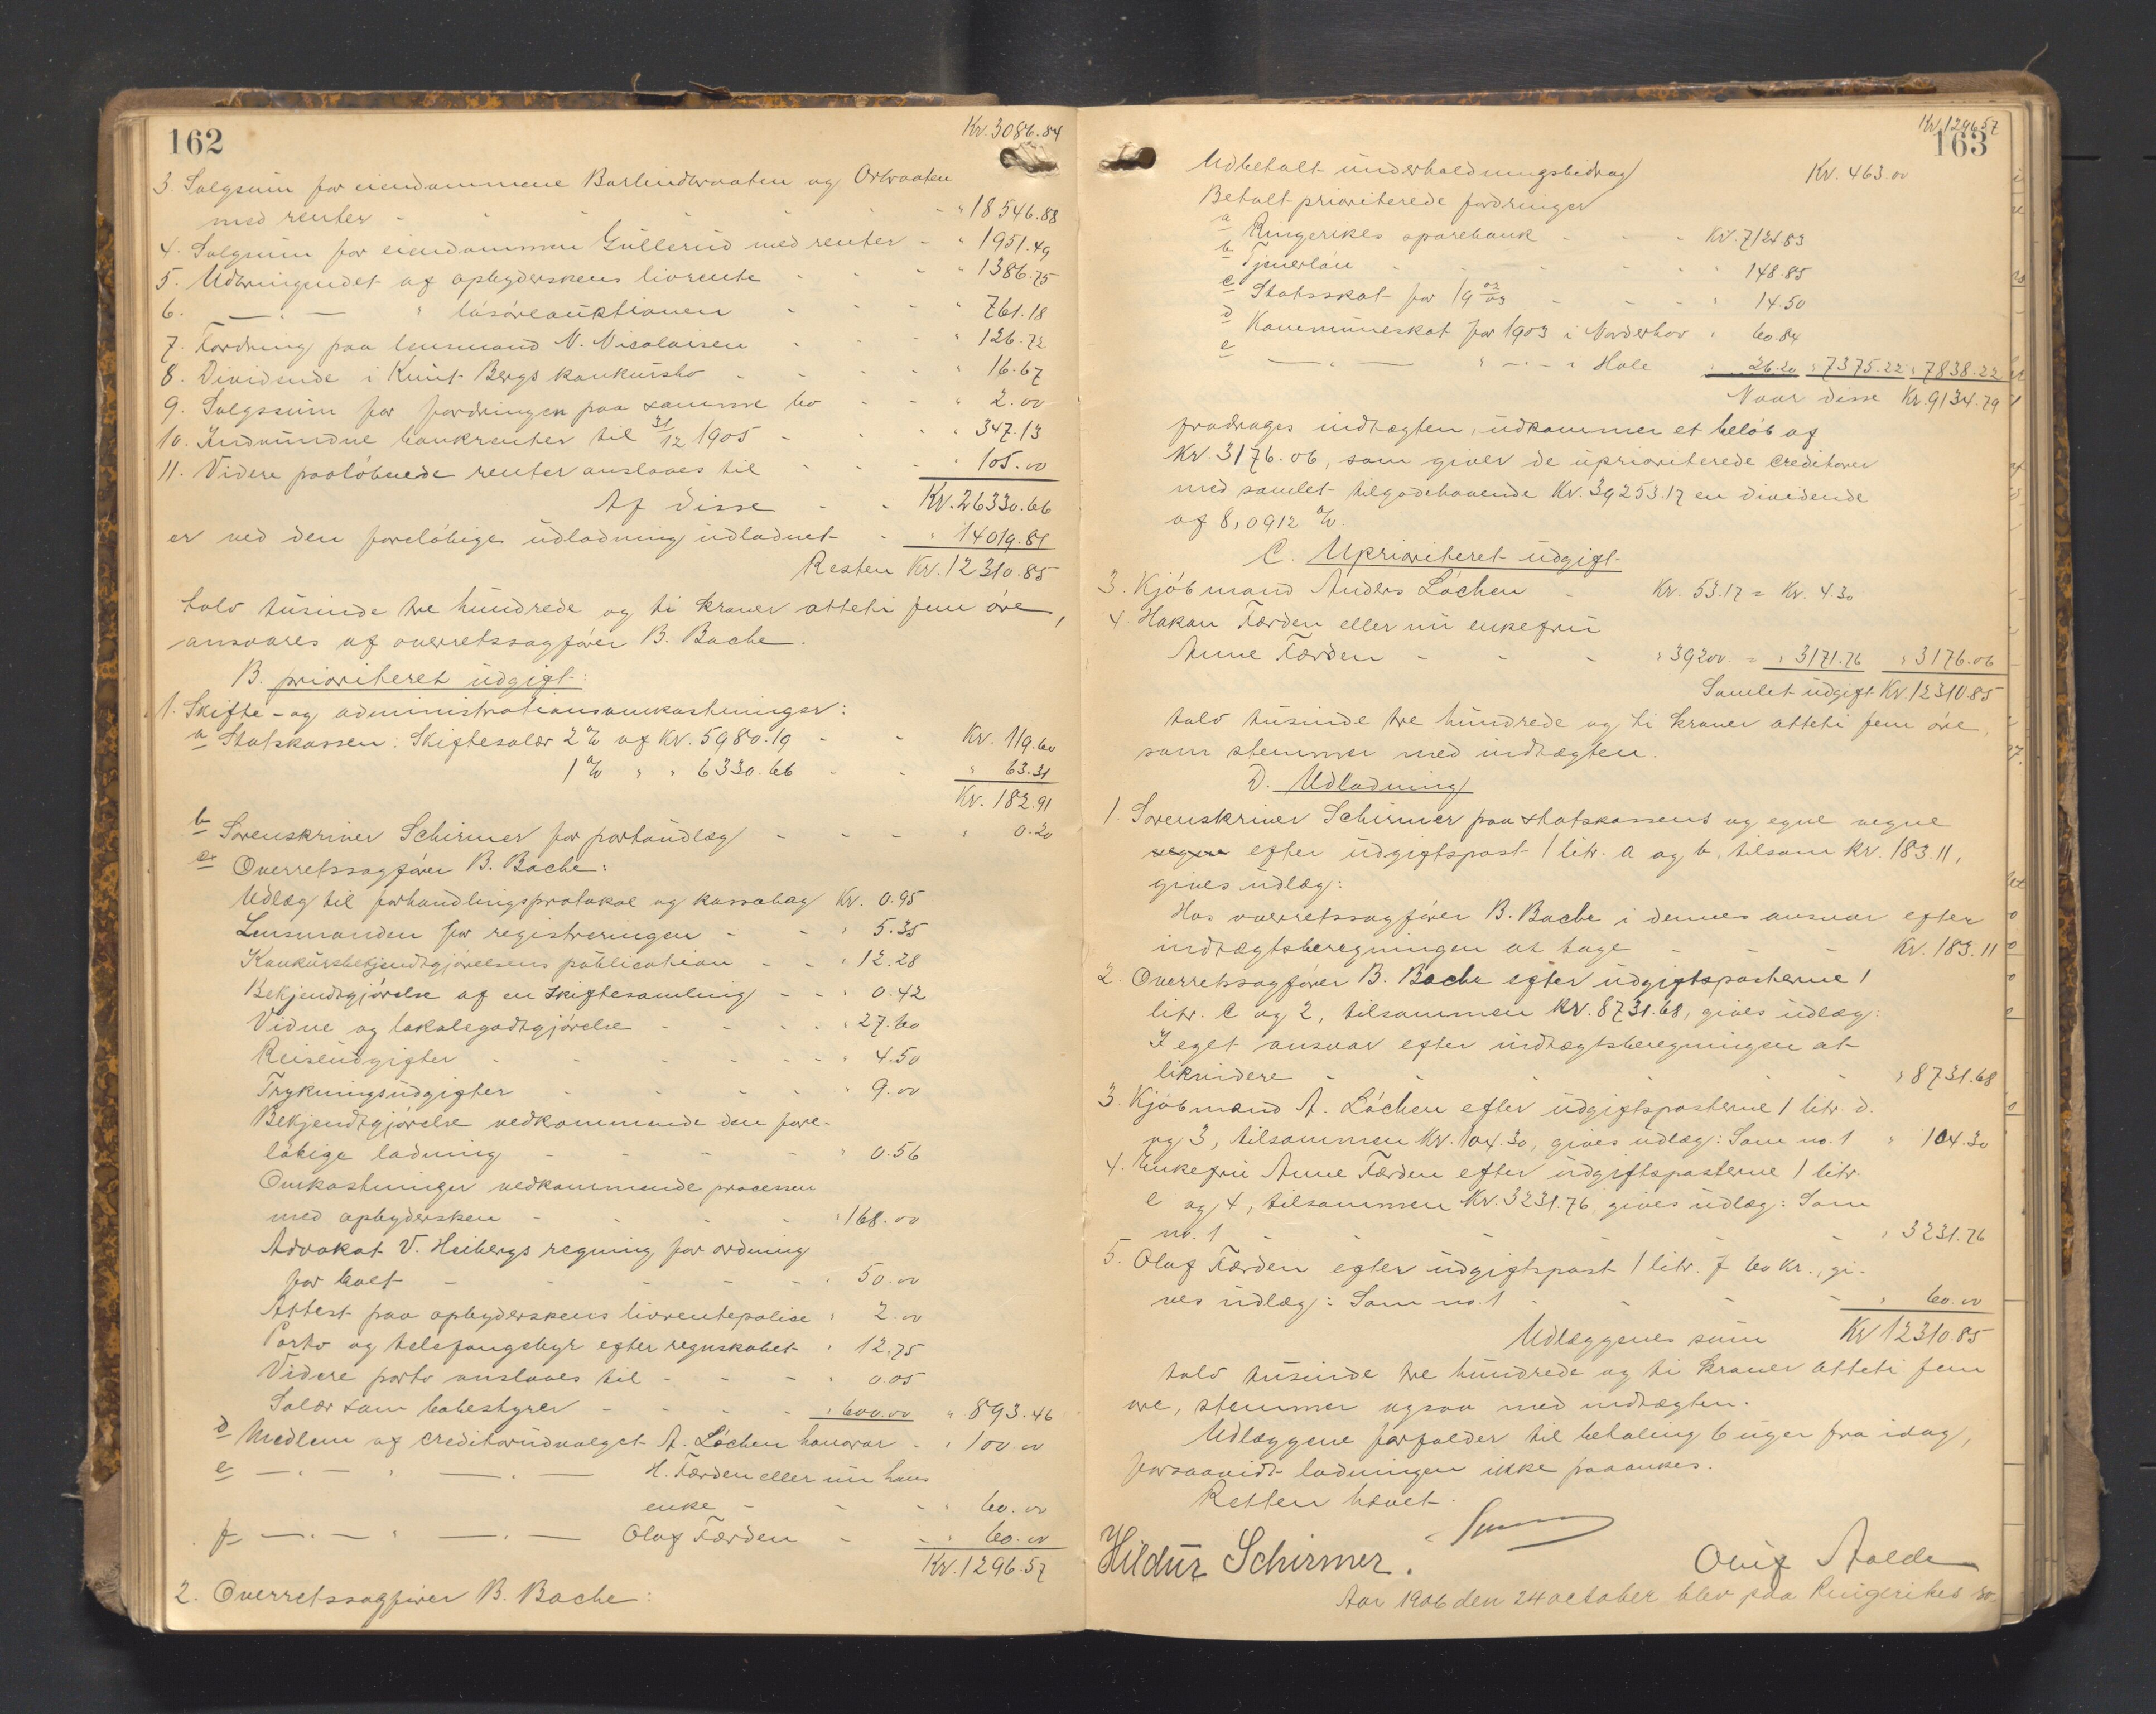 162
Kr. 3086.84
3. Salgsum for eiendommene Barlindbraaten og Orbraaten
med renter - - - - - " 18546.88
4. Salgsum for eiendommen Gullerud med renter - " 1951.49
5. Udbringendet af opbyderskens livrente - - - " 1386.75
6. — " — " løsøreauktionen - - - " 761.18
7. Fordring paa lensmand N. Nicolaisen - - - " 126.72
8. Dividende i Knut Bergs konkursbo - - - - " 16.67
9. Salgssum for fordringen paa samme bo - - " 2.00
10. Indvundne bankrenter til 31/12 1905 - - - " 347.13
11. Videre paaløbende renter anslaaes til - - - " 105.00
Af disse - - Kr. 26330.66
er ved den foreløbige udlodning udlodnet - " 14019.81
Resten Kr. 12310.85
tolv tusinde tre hundrede og ti kroner otteti fem øre,
ansvares af overretssagfører B. Bache.
B. prioriteret udgift:
1. Skifte- og administrationsomkostninger:
a Statskassen: Skiftesalær 2 % af Kr. 5980.19 - - Kr. 119.60
1 % " " 6330.66 - - " 63.31
Kr. 182.91
b Sorenskriver Schirmer for portoudlæg - - - " 0.20
c Overretssagfører B. Bache:
Udlæg til forhandlingsprotokol og kassabog Kr. 0.95
Lensmanden for registreringen - - " 5.35
Konkursbekjendtgjørelsens publication - - " 12.28
Bekjendtgjørelse af en skiftesamling - - " 0.42
Vidne og lokalegodtgjørelse - - - - " 27.60
Reiseudgifter - - - - - " 4.50
Trykningsudgifter - - - - " 9.00
Bekjendtgjørelse vedkommende den fore-
løbige lodning - - - - " 0.56
Omkostninger vedkommende processen
med opbydersken - - - - " 168.00
Advokat V. Heibergs regning for ordning
for boet - - - - - " 50.00
Attest paa opbyderskens livrentepolice " 2.00
Porto og telefongebyr efter regnskabet " 12.75
Videre porto anslaaes til - - - " 0.05
Salær som bobestyrer - - - - " 600.00 " 893.46
d Medlem af creditorudvalget A. Løchen honorar - " 100.00
e — " — " — " — H. Færden eller nu hans
enke - - - " 60.00
f — " — " — " — Olaf Færden - - " 60.00
Kr. 1296.57
2. Overretssagfører B. Bache:
Kr. 1296.57
163
Udbetalt underholdningsbidrag Kr. 463.00
Betalt prioriterede fordringer
a Ringerikes sparebank - - - Kr. 7124.83
b Tjenerløn - - - - - " 148.85
c Statsskat for 19 02/03 - - - - " 14.50
d Kommuneskat for 1903 i Norderhov " 60.84
e — " — " — " — i Hole " 26.20 " 7375.22 " 7838.22
Naar disse Kr. 9134.79
fradrages indtægten, udkommer et beløb af
Kr. 3176.06, som giver de uprioriterede creditorer
med samlet tilgodehavende Kr. 39253.17 en dividende
af 8,0912 %.
C. Uprioriteret udgift
3. Kjøbmand Anders Løchen - Kr. 53.17 = Kr. 4.30
4. Hakon Færden eller nu enkefru
Anne Færden - - - " 39200 = " 3171.76 " 3176.06
Samlet udgift Kr. 12310.85
tolv tusinde tre hundrede og ti kroner otteti fem øre,
som stemmer med indtægten.
D. Udlodning
1. Sorenskriver Schirmer paa statskassens og egne vegne
vegne efter udgiftspost 1 litr. a og b, tilsam kr. 183.11,
gives udlæg:
Hos overretssagfører B. Bache i dennes ansvar efter
indtægtsberegningen at tage - - - Kr. 183.11
2. Overretssagfører B. Bache efter udgiftsposterne 1
litr. c og 2, tilsammen Kr. 8731.68, gives udlæg:
I eget ansvar efter indtægtsberegningen at
likvidere - - - - - " 8731.68
3. Kjøbmand A. Løchen efter udgiftsposterne 1 litr. d.
og 3, tilsammen Kr. 104.30, gives udlæg: Som no. 1 " 104.30
4. Enkefru Anne Færden efter udgiftsposterne 1 litr.
e og 4, tilsammen Kr. 3231.76, gives udlæg: Som
no. 1 - - - - - " 3231.76
5. Olaf Færden efter udgiftspost 1 litr. f 60 Kr., gi-
ves udlæg: Som no. 1 - - - - " 60.00
Udlæggenes sum Kr 12310.85
tolv tusinde tre hundrede og ti kroner otteti fem
øre, stemmer ogsaa med indtægten.
Udlæggene forfalder til betaling 6 uger fra idag,
forsaavidt lodningen ikke paaankes.
Retten hævet.
Hildur Schirmer.
Oluf Aalde
Aar 1906 den 24 october blev paa Ringerikes so-